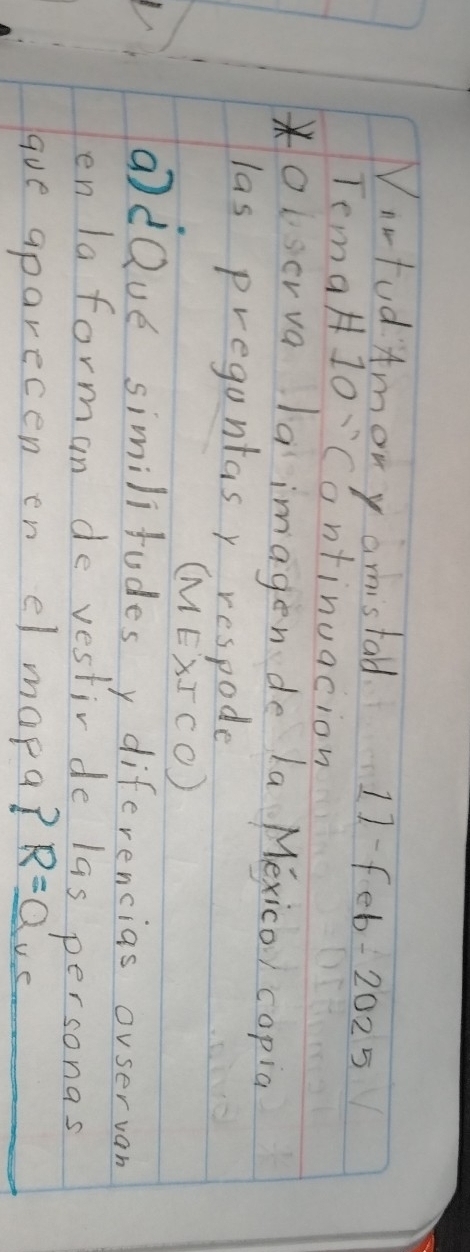 Virtud: Amor y amistad 11-feb-2025
Tema # 10 "Continuacion
* Observa la imagen de la México y copia
las preguntas y respode
(MEXICO)
a) ¿Qué similitudes y diferencias ovservan
en la forman de vestir de las personas
que aparecen en el mapa? R=Que